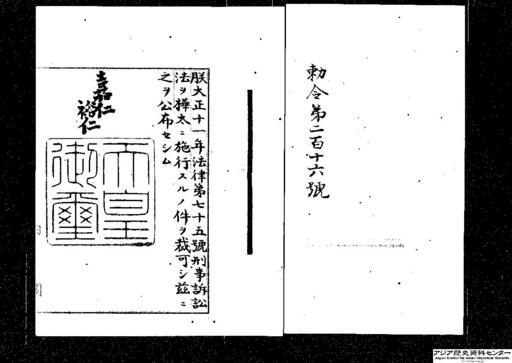 勅令第二百十六號
朕大正十一年法律第七十五號刑事訴訟
法ヲ樺太ニ施行スルノ件ヲ裁可シ茲ニ
之ヲ公布セシム
嘉仁
裕仁
天皇
御璽
アジア歴史資料センター
Japan Center for Asian Historical Records